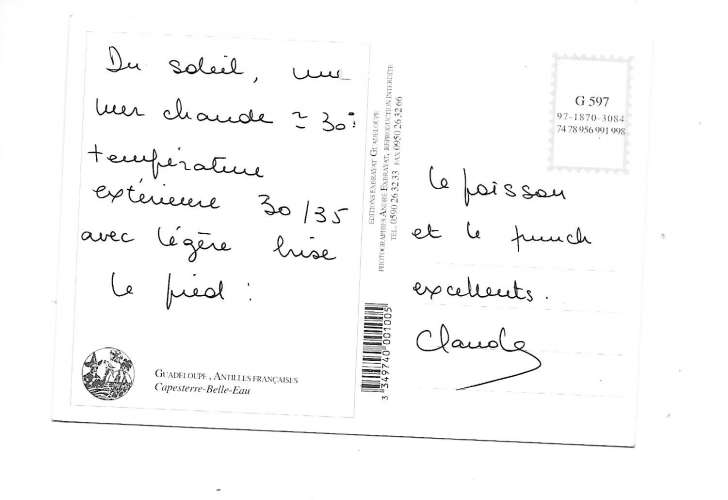 Du soleil, une
mer chaude ≃ 30°
température
extérieure 30/35
avec légère brise
le pied !
GUADELOUPE, ANTILLES FRANÇAISES
Capesterre-Belle-Eau
EDITIONS EXBRAYAT GUADELOUPE
PHOTOGRAPHIES ANDRE EXBRAYAT, REPRODUCTION INTERDITE
TEL. 0590 26 32 33 FAX 0590 26 32 66
3 349740 001005
G 597
97-1870-3084
74 78 956 991 998
le poisson
et le punch
excellents.
Claude